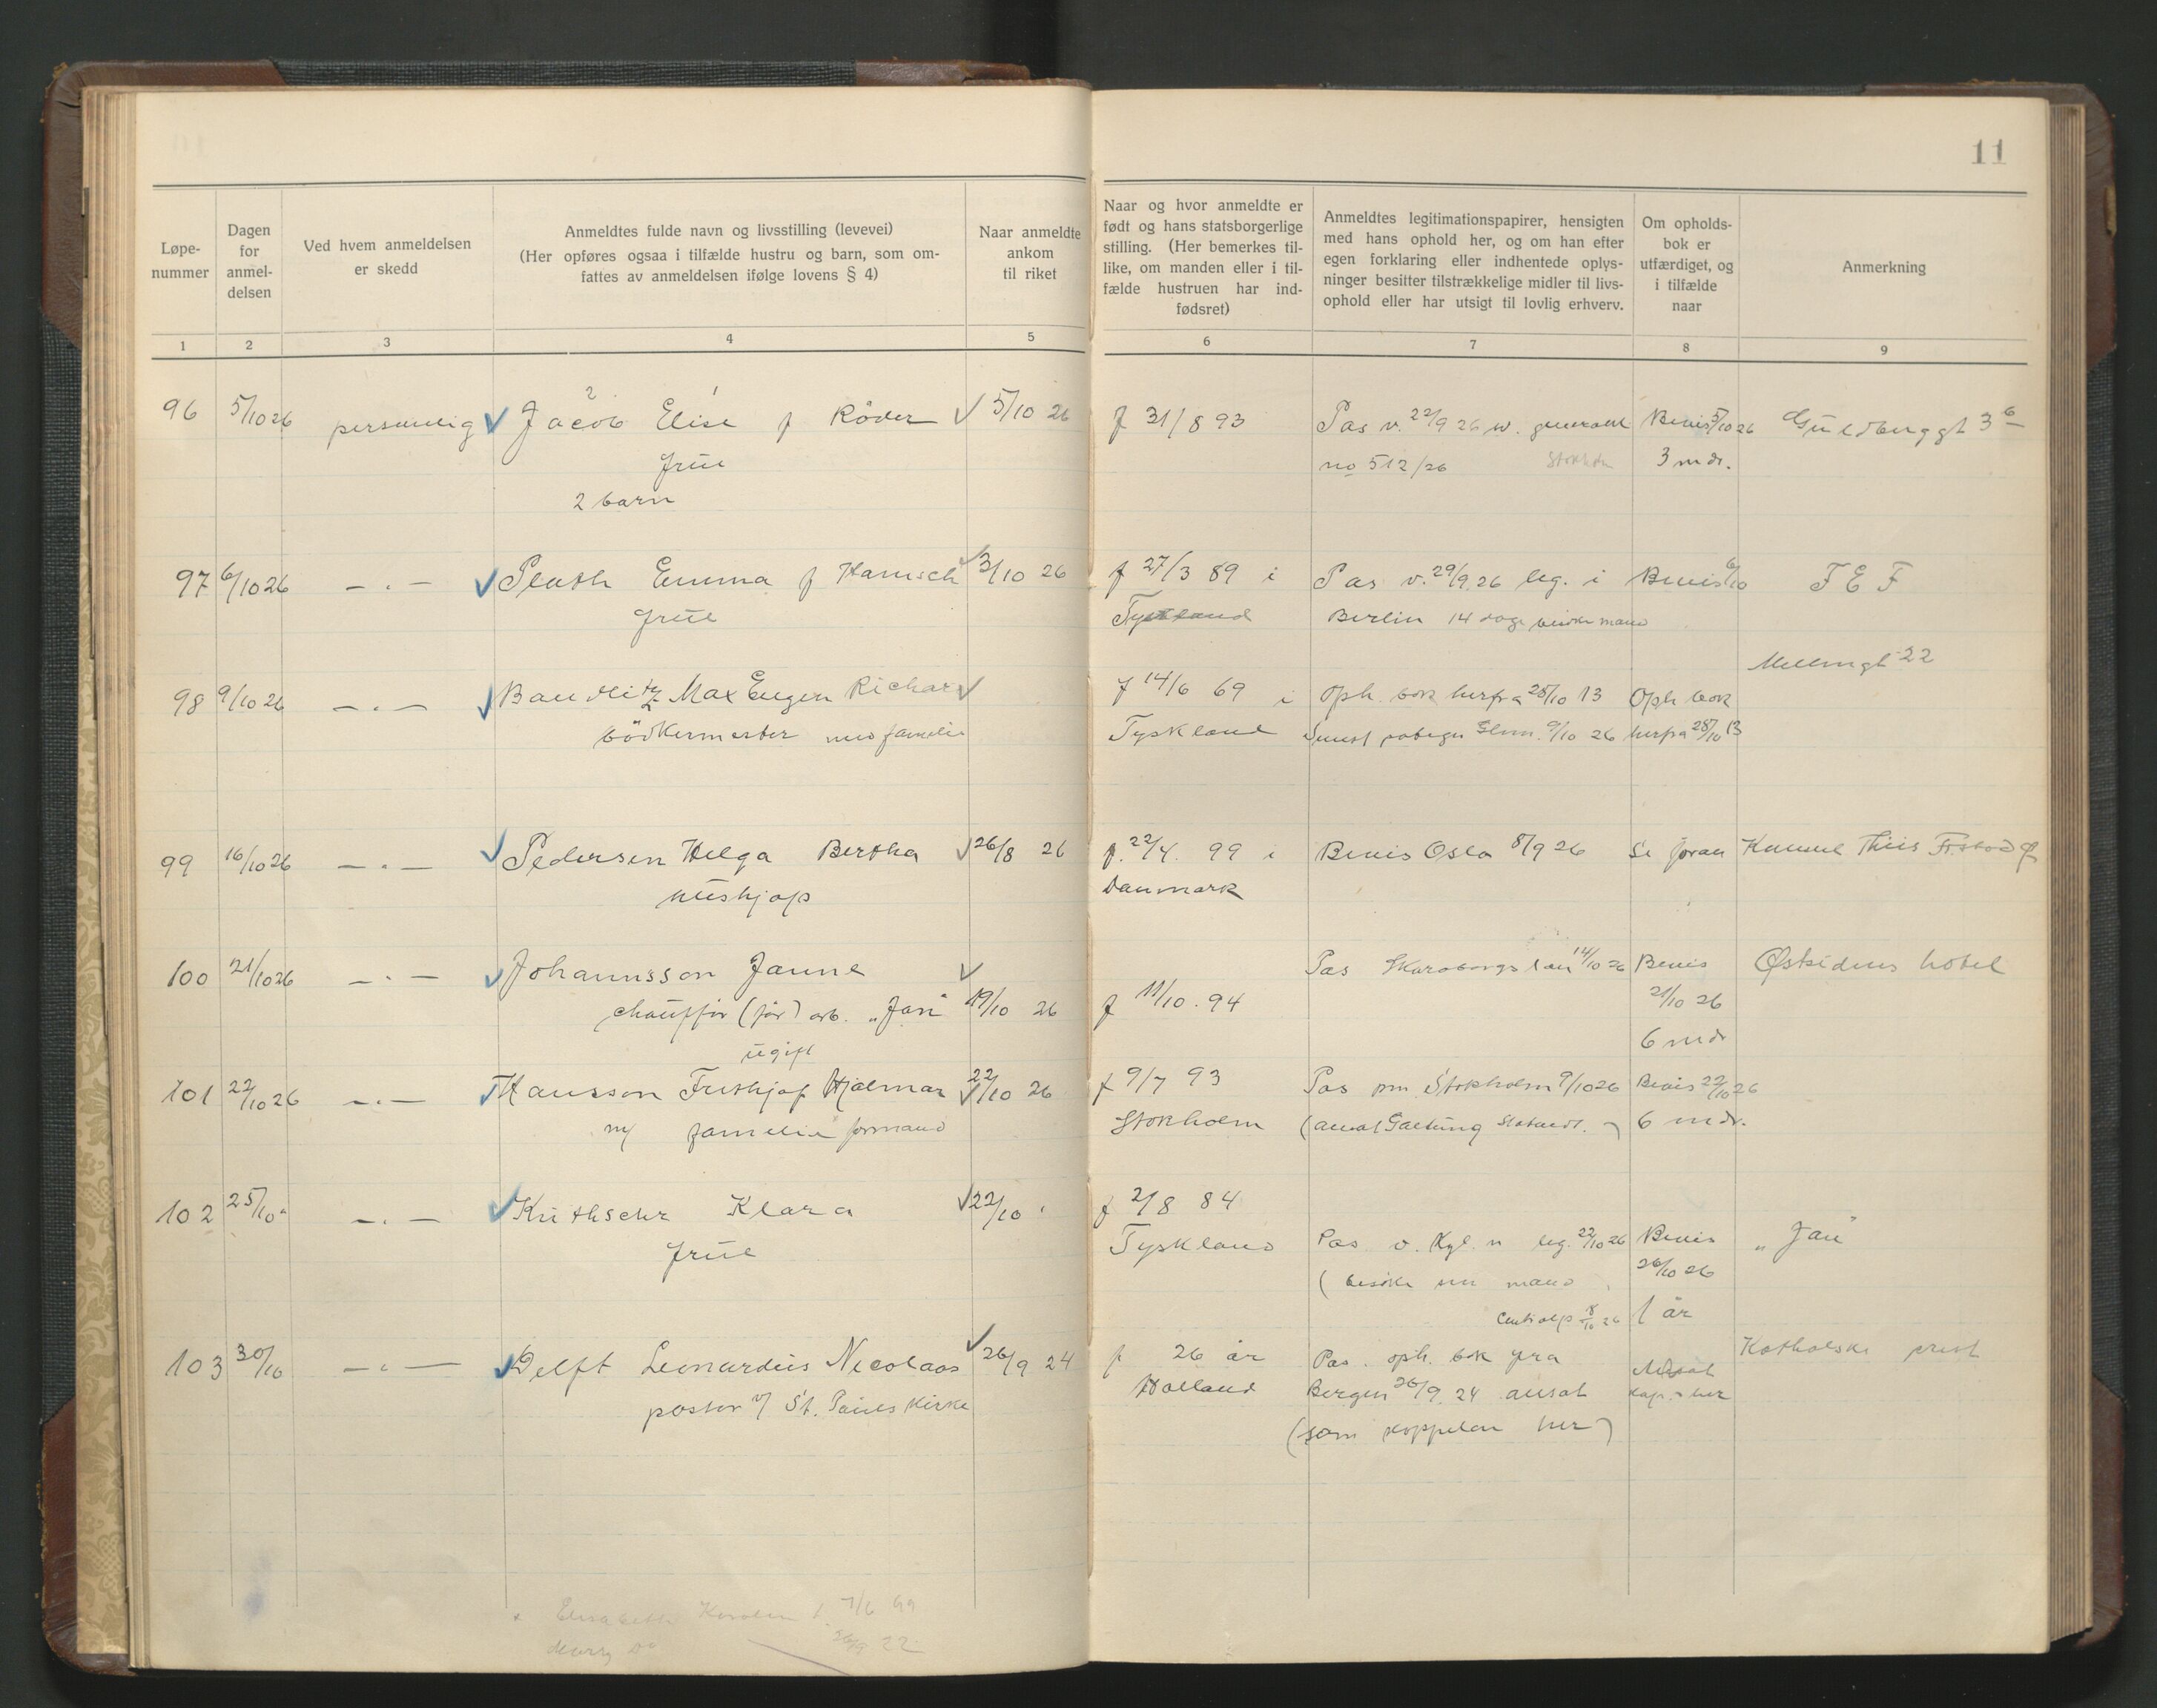 11
Løpe-
nummer
Dagen
for
anmel-
delsen
Ved hvem anmeldelsen
er skedd
Anmeldtes fulde navn og livsstilling (levevei)
(Her opføres ogsaa i tilfælde hustru og barn, som om-
fattes av anmeldelsen ifølge lovens § 4)
Naar anmeldte
ankom
til riket
Naar og hvor anmeldte er
født og hans statsborgerlige
stilling. (Her bemerkes til-
like, om manden eller i til-
fælde hustruen har ind-
fødsret)
Anmeldtes legitimationspapirer, hensigten
med hans ophold her, og om han efter
egen forklaring eller indhentede oplys-
ninger besitter tilstrækkelige midler til livs-
ophold eller har utsigt til lovlig erhverv.
Om opholds-
bok er
utfærdiget, og
i tilfælde
naar
Anmerkning
1 2 3 4 5 6 7 8 9
96 5/10 26 personlig Jacob Elise f Röder 5/10 26 f 31/8 93 Pas v. 22/9 26 Bevis 5/10 26 Guldberggt 3
2 1
frue no 512/26 3 mdr.
2 barn
97 6/10 26 — " — Plath Emma f Harnisch 3/10 26 f 27/3 89 i Pas v. 29/9 26 leg. i Bevis 6/10 F E F
frue Tyskland Berlin 14 dage besøke mand
98 9/10 26 — " — Baudlitz Max Eugen Richard f 14/6 69 i Oph. bok herfra 28/10 13 Oph bok
22
bödkermester med familie Tyskland 9/10 26 herfra 28/10 13
99 16/10 26 — " — Pedersen Helga Bertha 26/8 26 f. 22/4. 99 i Bevis Oslo 8/9 26 Se foran Thiis
hushjælp Danmark
100 21/10 26 — " — Johannsson Janne Pas Skaraborgs län 14/10 26 Bevis Østsidens hotel
chauffør (før) arb. „Jan" 19/10 26 f 11/10. 94 21/10 26
ugift 6 mdr
101 22/10 26 — " — Hansson Frithjof Hjalmar 22/10 26 f 9/7 93 Pas Stokholm 9/10 26 Bevis 22/10 26
m/ familie formand Stokholm 6 mdr.
102 25/10 — " — Klara 22/10 f 2/8 84
frue Tyskland Pas v. leg. 22/10 26 Bevis „Jan"
(besøke sin mand 26/10 26
1 år
103 30/10 — " — Delft Leonardus Nicolaas 26/9 24 f 26 år Pas. oph. bok fra Katholske prest
pastor v/ St. Paules Kirke Holland Bergen 26/9. 24 ansat her
(som kappelan her)
Elisabeth 7/6 99
22